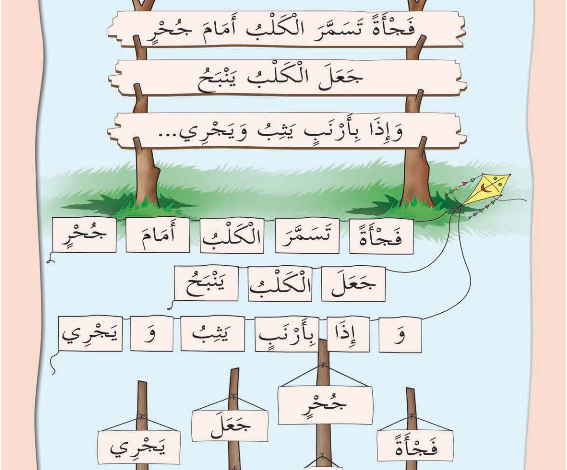 فَجْأَةً تَسَمَّرَ الْكَلْبُ أَمَامَ جُحْرٍ
جَعَلَ الْكَلْبُ يَنْبَحُ
وَإِذَا بِأَرْنَبٍ يَثِبُ وَيَجْرِي...
فَجْأَةً تَسَمَّرَ الْكَلْبُ أَمَامَ جُحْرٍ
جَعَلَ الْكَلْبُ يَنْبَحُ
وَ إِذَا بِأَرْنَبٍ يَثِبُ وَ يَجْرِي
جُحْرٍ
جَعَلَ
فَجْأَةً
يَجْرِي